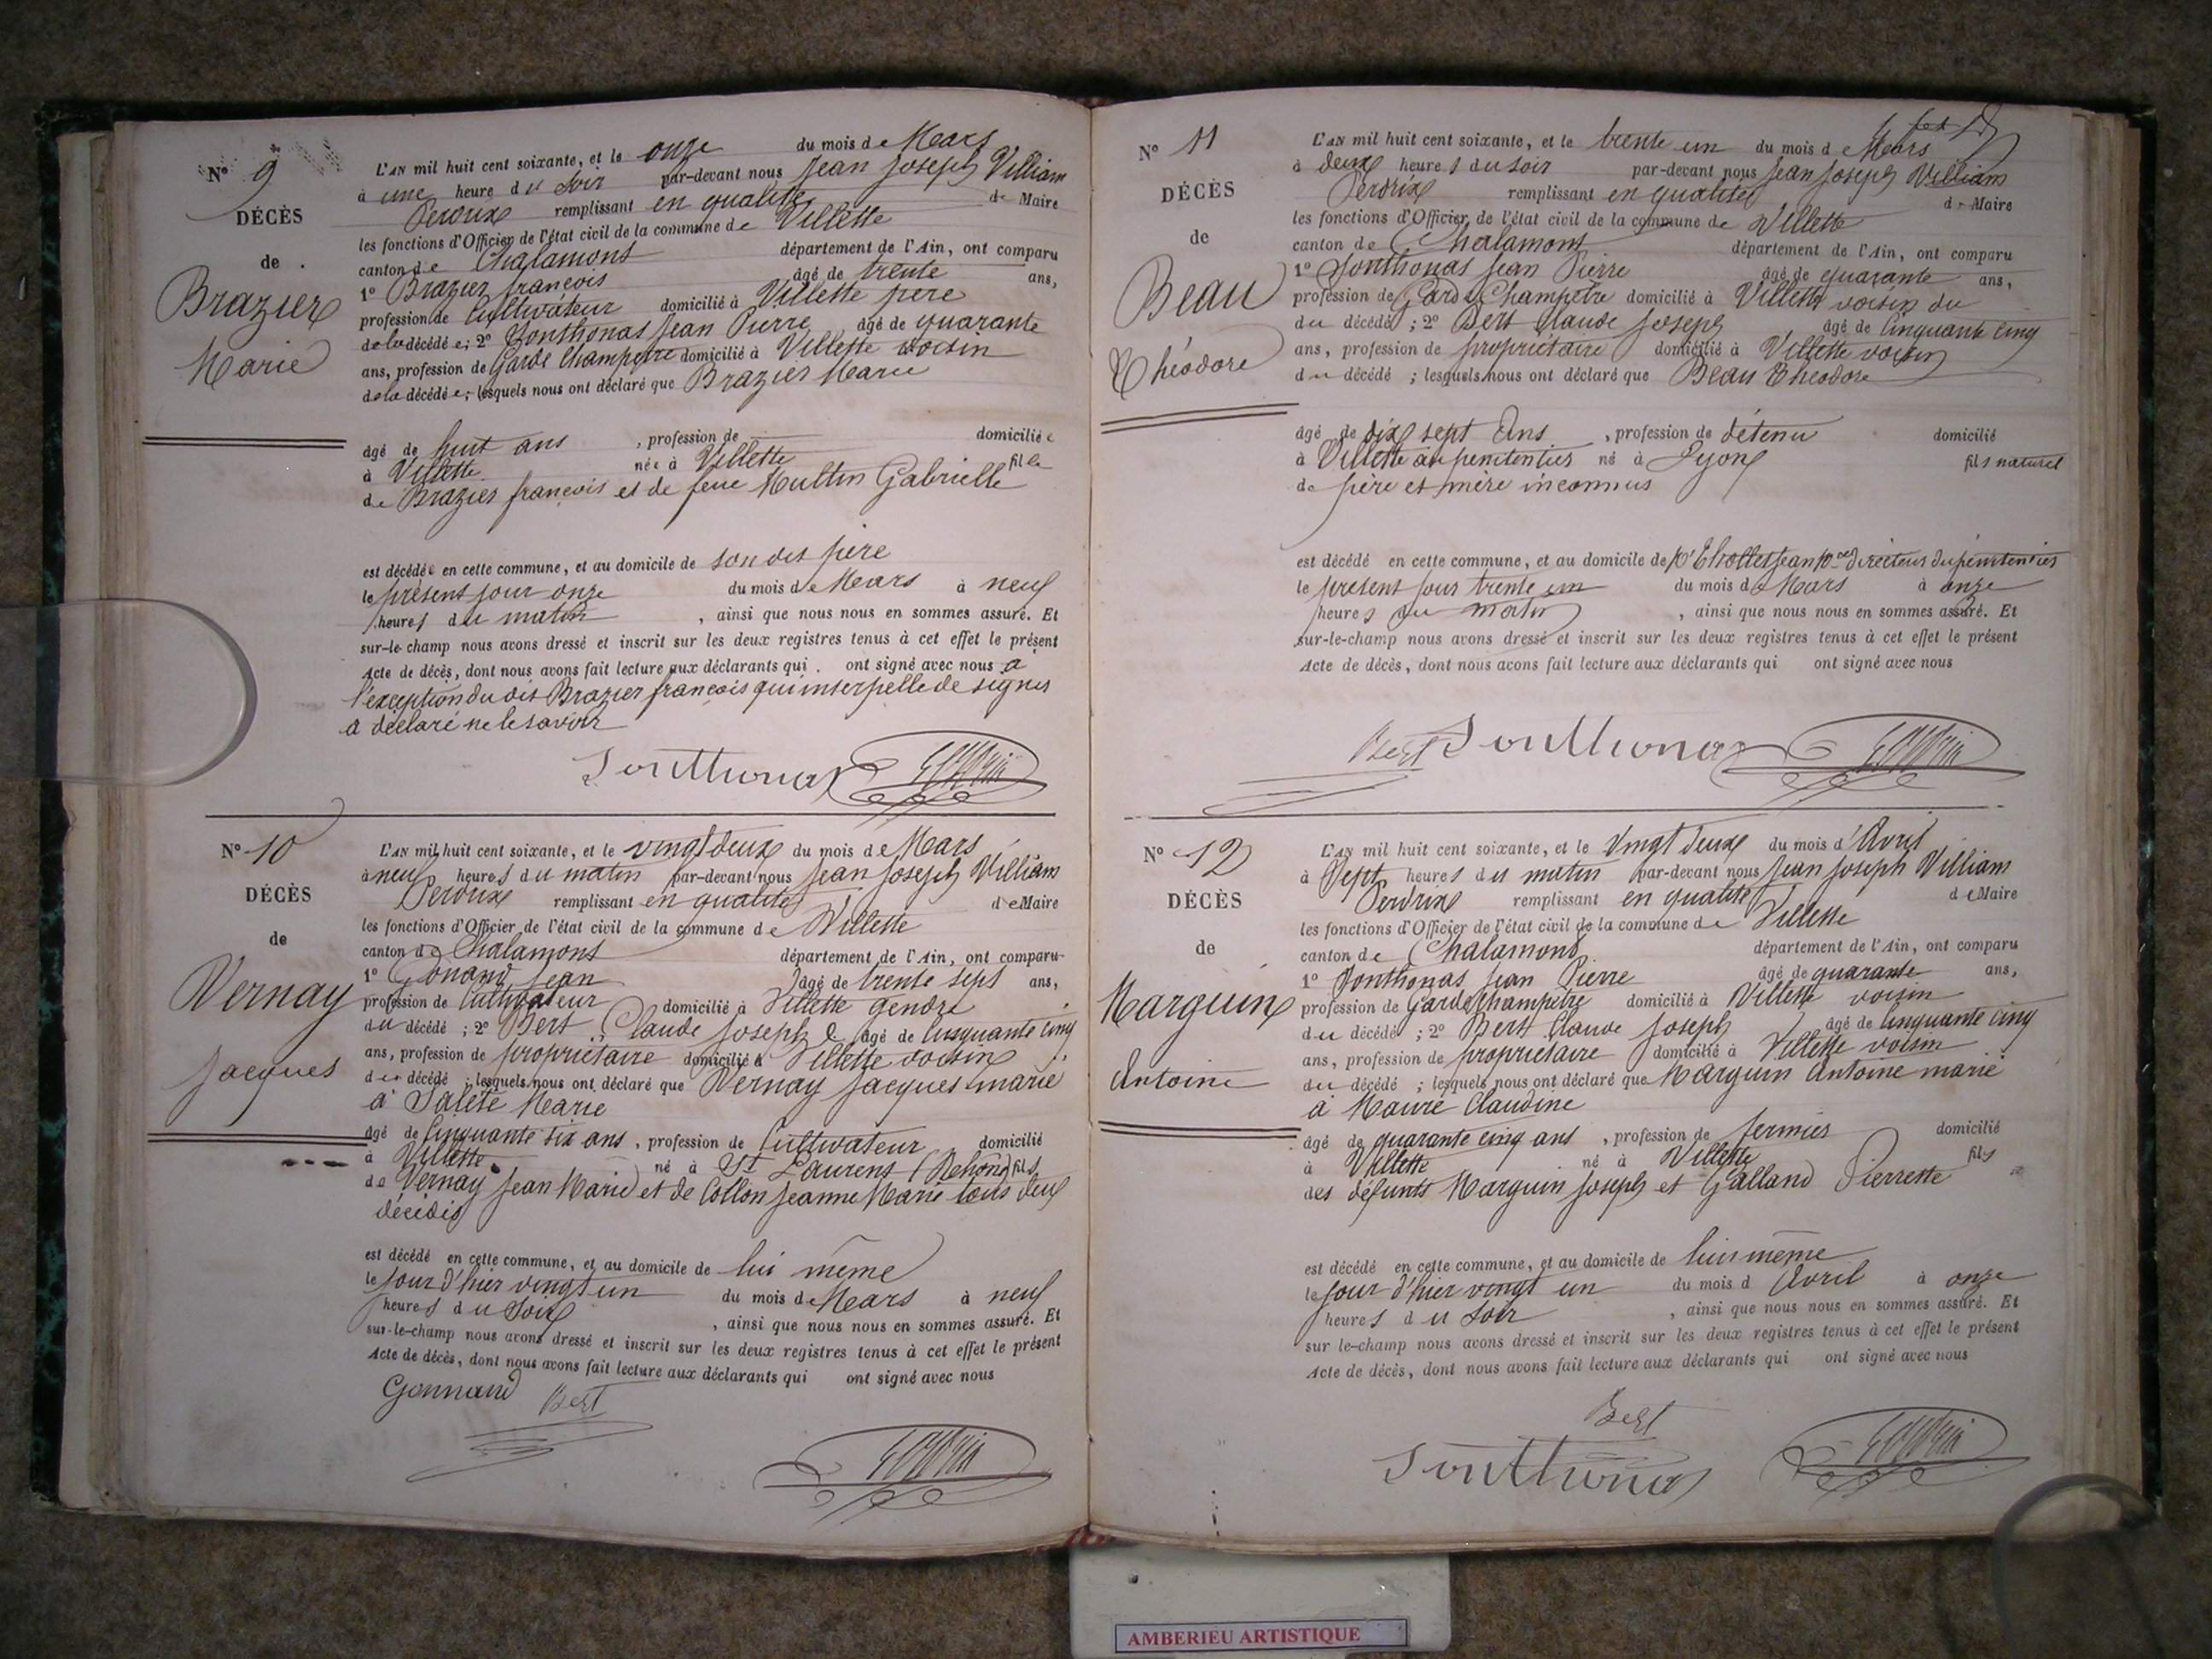 N° 9
DÉCÈS
de
Brazier
Marie
L'AN mil huit cent soixante, et le onze du mois de Mars
à une heure du soir par-devant nous Jean Joseph William
Perdrix remplissant en qualité de Maire
les fonctions d'Officier de l'état civil de la commune de Villette
canton de Chalamont département de l'Ain, ont comparu
1° Brazier françois âgé de trente ans,
profession de Cultivateur domicilié à Villette père
de la décédée; 2° Sonthonas Jean Pierre âgé de quarante
ans, profession de Garde Champetre domicilié à Villette voisin
de la décédée; lesquels nous ont déclaré que Brazier Marie
âgé de huit ans, profession de domiciliée
à Villette née à Villette fille
de Brazier françois et de feue Multin Gabrielle
est décédée en cette commune, et au domicile de son dit père
le présent jour onze du mois de Mars à neuf
heures du matin, ainsi que nous nous en sommes assuré. Et
sur-le-champ nous avons dressé et inscrit sur les deux registres tenus à cet effet le présent
Acte de décès, dont nous avons fait lecture aux déclarants qui ont signé avec nous a
l'exception du dit Brazier françois qui interpelle de signer
a déclaré ne le savoir
Sonthonas
N° 10
DÉCÈS
de
Vernay
Jacques
L'AN mil huit cent soixante, et le vingt deux du mois de Mars
à neuf heures du matin par-devant nous Jean Joseph William
Perdrix remplissant en qualité de Maire
les fonctions d'Officier de l'état civil de la commune de Villette
canton de Chalamont département de l'Ain, ont comparu
1° Gonand Jean âgé de trente sept ans,
profession de Cultivateur domicilié à Villette gendre
du décédé; 2° Bert Claude Joseph âgé de Cinquante cinq
ans, profession de propriétaire domicilié à Villette voisin
du décédé; lesquels nous ont déclaré que Vernay Jacques marié
à Marie
âgé de Cinquante six ans, profession de Cultivateur domicilié
à Villette né à St Laurent (Rehone) fils
de Vernay Jean Marie et de Collon Jeanne Marie tous deux
décédés
est décédé en cette commune, et au domicile de lui même
le jour d'hier vingt un du mois de Mars à neuf
heures du Soir, ainsi que nous nous en sommes assuré. Et
sur-le-champ nous avons dressé et inscrit sur les deux registres tenus à cet effet le présent
Acte de décès, dont nous avons fait lecture aux déclarants qui ont signé avec nous
Gonnand Bert
N° 11
DÉCÈS
de
Beau
Théodore
L'AN mil huit cent soixante, et le trente un du mois de Mars
à deux heures du soir par-devant nous Jean Joseph William
Perdrix remplissant en qualité de Maire
les fonctions d'Officier de l'état civil de la commune de Villette
canton de Chalamont département de l'Ain, ont comparu
1° Sonthonas Jean Pierre âgé de quarante ans,
profession de Garde Champetre domicilié à Villette voisin du
du décédé; 2° Bert Claude Joseph âgé de Cinquante cinq
ans, profession de propriétaire domicilié à Villette voisin
du décédé; lesquels nous ont déclaré que Beau Théodore
âgé de dix sept Ans, profession de détenu domicilié
à Villette au penitentier né à Lyon fils naturel
de père et mère inconnus
est décédé en cette commune, et au domicile de directeur du pénitentier
le présent jour trente un du mois de Mars à onze
heures du matin, ainsi que nous nous en sommes assuré. Et
sur-le-champ nous avons dressé et inscrit sur les deux registres tenus à cet effet le présent
Acte de décès, dont nous avons fait lecture aux déclarants qui ont signé avec nous
Bert Sonthonas
N° 12
DÉCÈS
de
Marguin
Antoine
L'AN mil huit cent soixante, et le Vingt deux du mois d'Avril
à Sept heures du matin par-devant nous Jean Joseph William
Perdrix remplissant en qualité de Maire
les fonctions d'Officier de l'état civil de la commune de Villette
canton de Chalamont département de l'Ain, ont comparu
1° Sonthonas Jean Pierre âgé de quarante ans,
profession de Garde Champêtre domicilié à Villette voisin
du décédé; 2° Bert Claude Joseph âgé de Cinquante cinq
ans, profession de propriétaire domicilié à Villette voisin
du décédé; lesquels nous ont déclaré que Marguin Antoine marié
à Maure Claudine
âgé de quarante cinq ans, profession de fermier domicilié
à Villette né à Villette fils
des défunts Marguin Joseph et Galland Pierrette
est décédé en cette commune, et au domicile de lui même
le jour d'hier vingt un du mois d Avril à onze
heures du soir, ainsi que nous nous en sommes assuré. Et
sur le-champ nous avons dressé et inscrit sur les deux registres tenus à cet effet le présent
Acte de décès, dont nous avons fait lecture aux déclarants qui ont signé avec nous
Bert
Sonthonas
AMBERIEU ARTISTIQUE